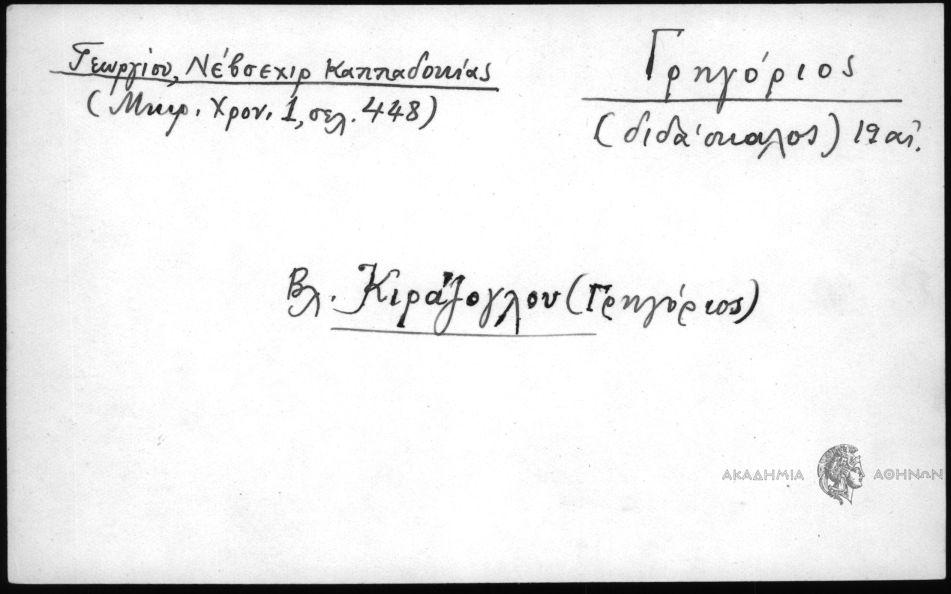 Γεωργίου, Νέβσεχιρ Καππαδοκίας
(Μικρ. Χρον. 1, σελ. 448)
Γρηγόριος
(διδάσκαλος) 19 αἰ.
Βλ. Κιράζογλου (Γρηγόριος)
ΑΚΑΔΗΜΙΑ ΑΘΗΝΩΝ